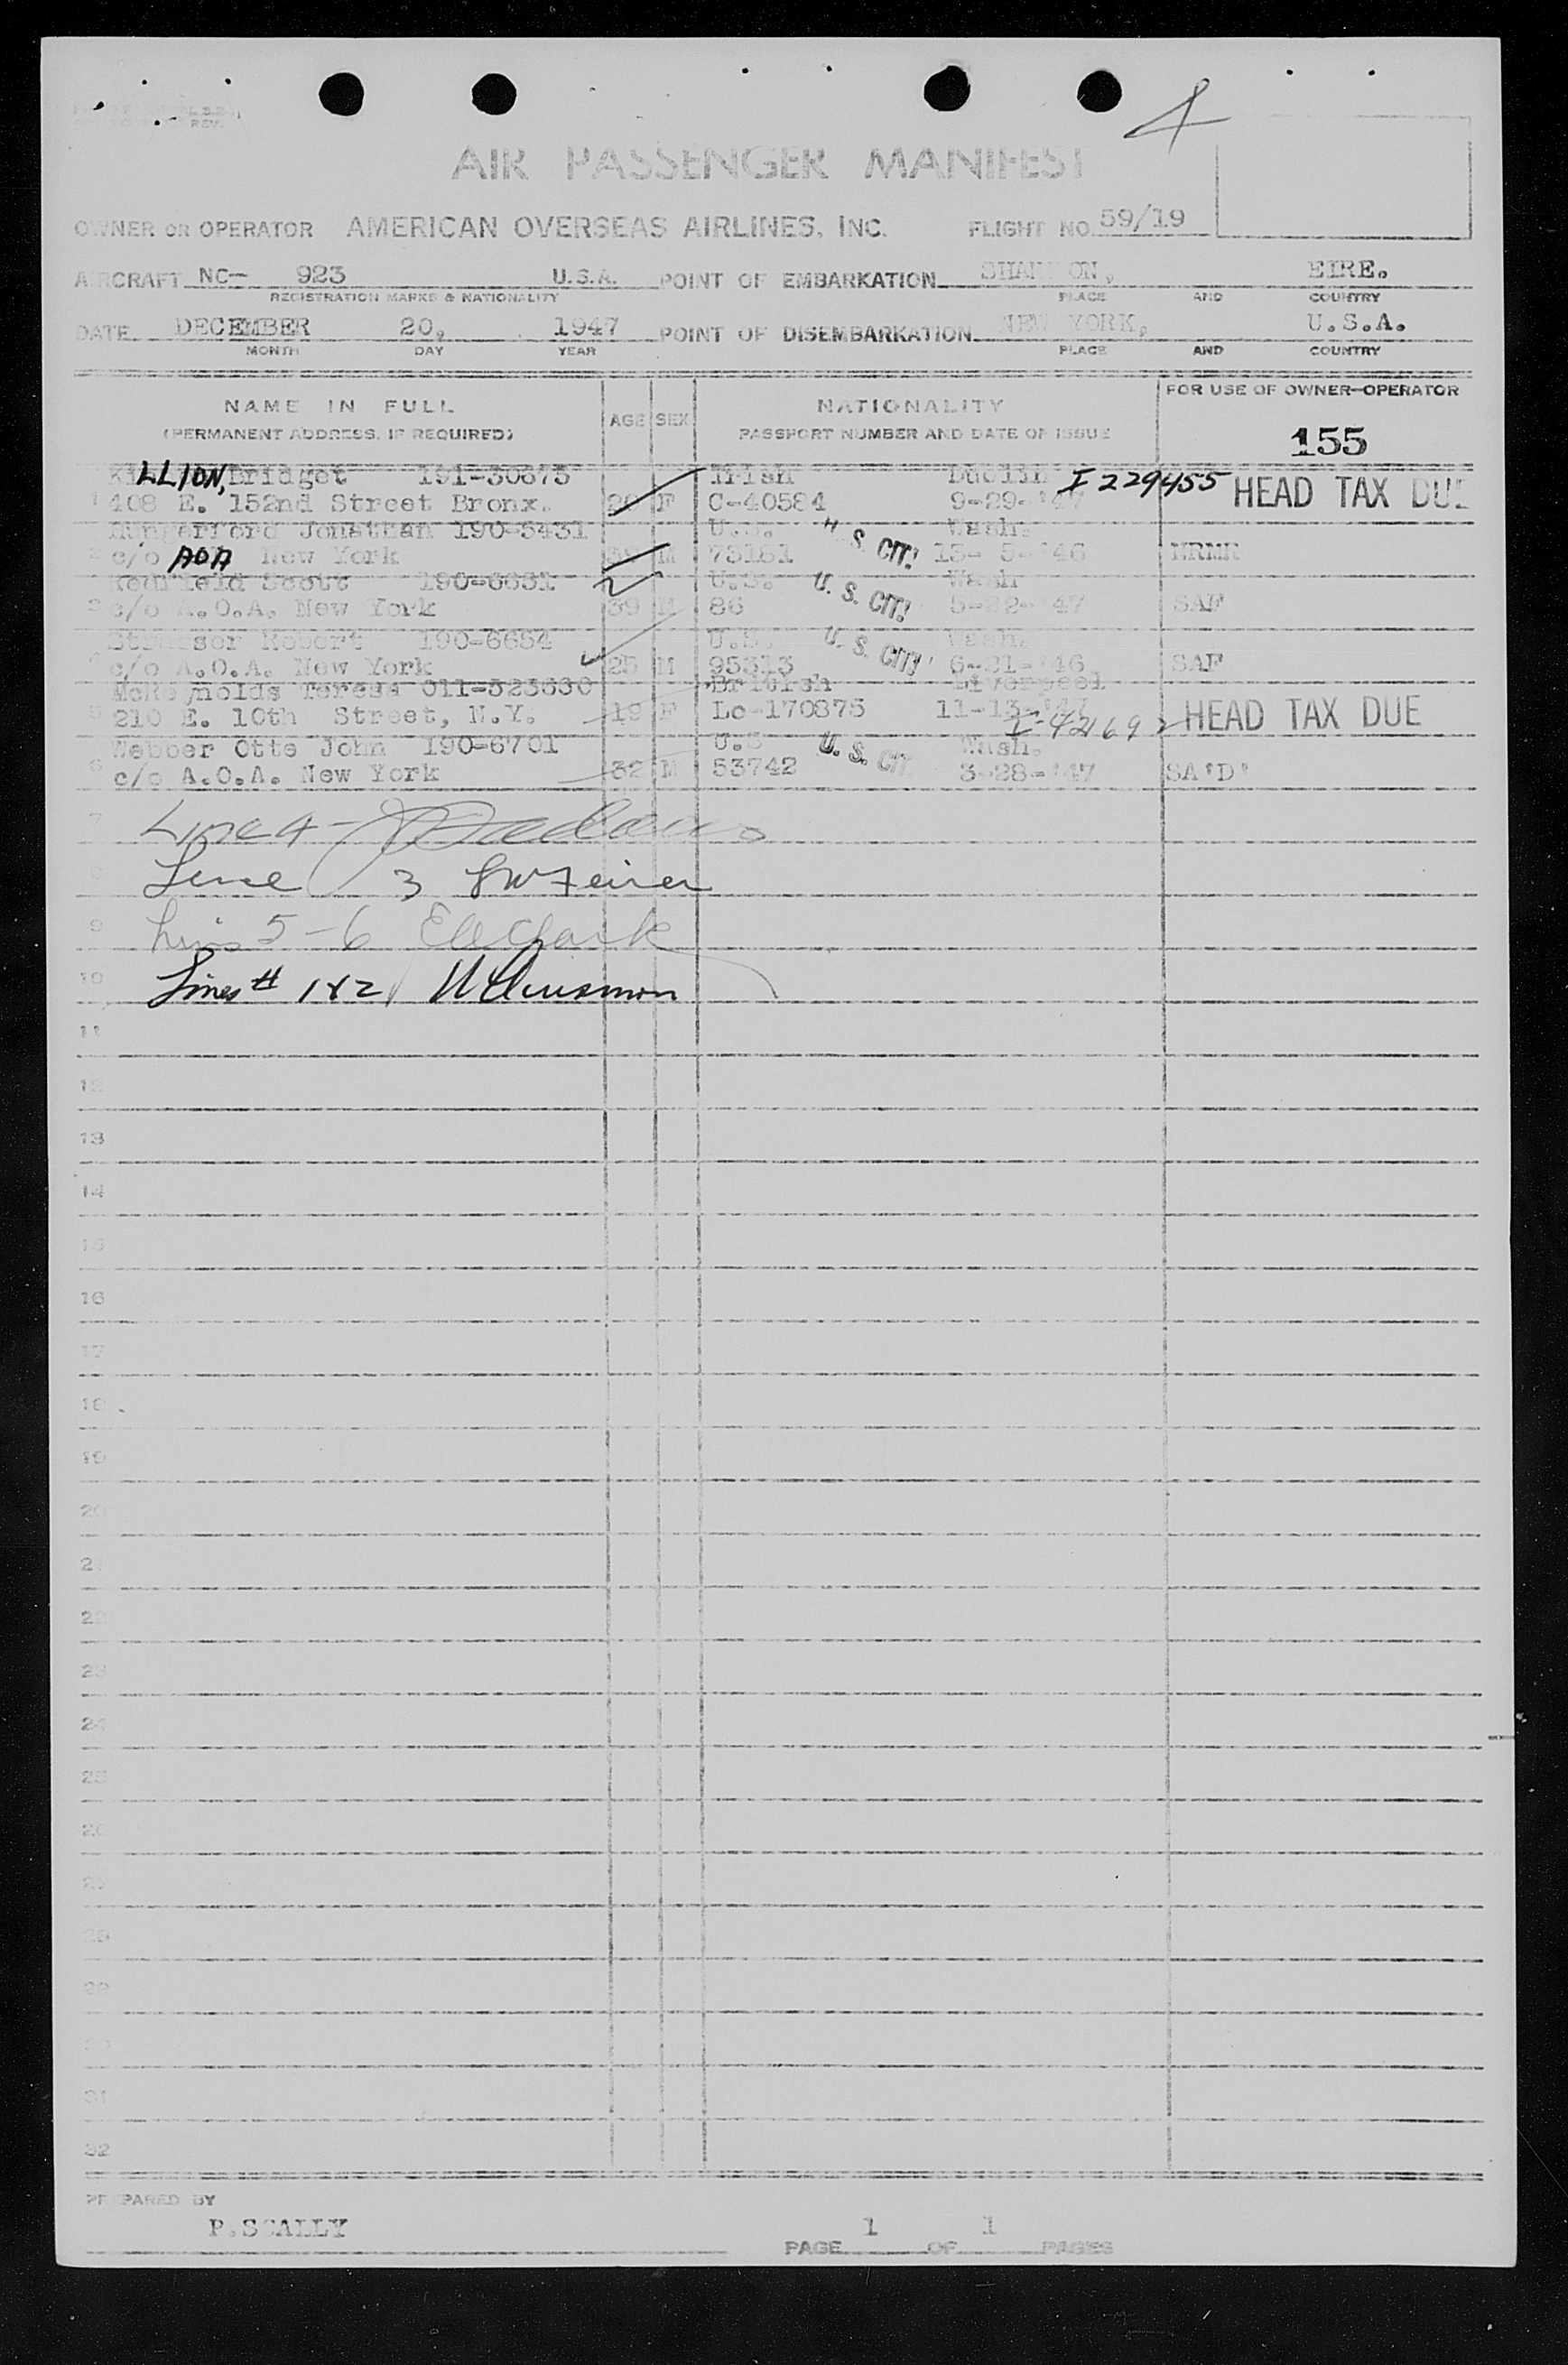 4
AIR PASSENGER MANIFEST
OWNER OR OPERATOR AMERICAN OVERSEAS AIRLINES, INC. FLIGHT NO. 59/19
AIRCRAFT NC- 923 U.S.A. POINT OF EMBARKATION SHANNON, EIRE.
REGISTRATION MARKS & NATIONALITY PLACE AND COUNTRY
DATE DECEMBER 20, 1947 POINT OF DISEMBARKATION NEW YORK, U.S.A.
MONTH DAY YEAR PLACE AND COUNTRY
NAME IN FULL AGE SEX NATIONALITY FOR USE OF OWNER-OPERATOR
(PERMANENT ADDRESS, IF REQUIRED) PASSPORT NUMBER AND DATE OF ISSUE 155
KiLLION, Bridget 191-30675 Irish Dublin I 229455 HEAD TAX DUE
1 408 E. 152nd Street Bronx. F C-40584 9-29-'47
Hungerford Jonathan 190-5431 U.S. U. S. CIT! Wash.
2 c/o AOA New York M 73151 '46 NRMR
Scott U.S. U. S. CIT! Wash
3 c/o A.O.A. New York 39 M 86 5-22-'47 SAF
Robert 190-6654 U.S. U. S. CIT! Wash.
4 c/o A.O.A. New York 25 M 95313 6-21-'46 SAF
McReynolds Teresa 011-323630 British Liverpool
5 210 E. 10th Street, N.Y. 19 F Lo-170875 11-13-'47 HEAD TAX DUE
Webber Otto John 190-6701 U.S U. S. CIT Wash.
6 c/o A.O.A. New York 32 M 53742 3-28-'47 SA'D'
7 Line 4-
8 Line 3
9 Lines 5-6
10 Lines # 1&2
11
12
13
14
15
16
17
18
19
20
21
22
23
24
25
26
27
28
29
30
31
32
PREPARED BY
P.SCALLY
PAGE 1 OF 1 PAGES